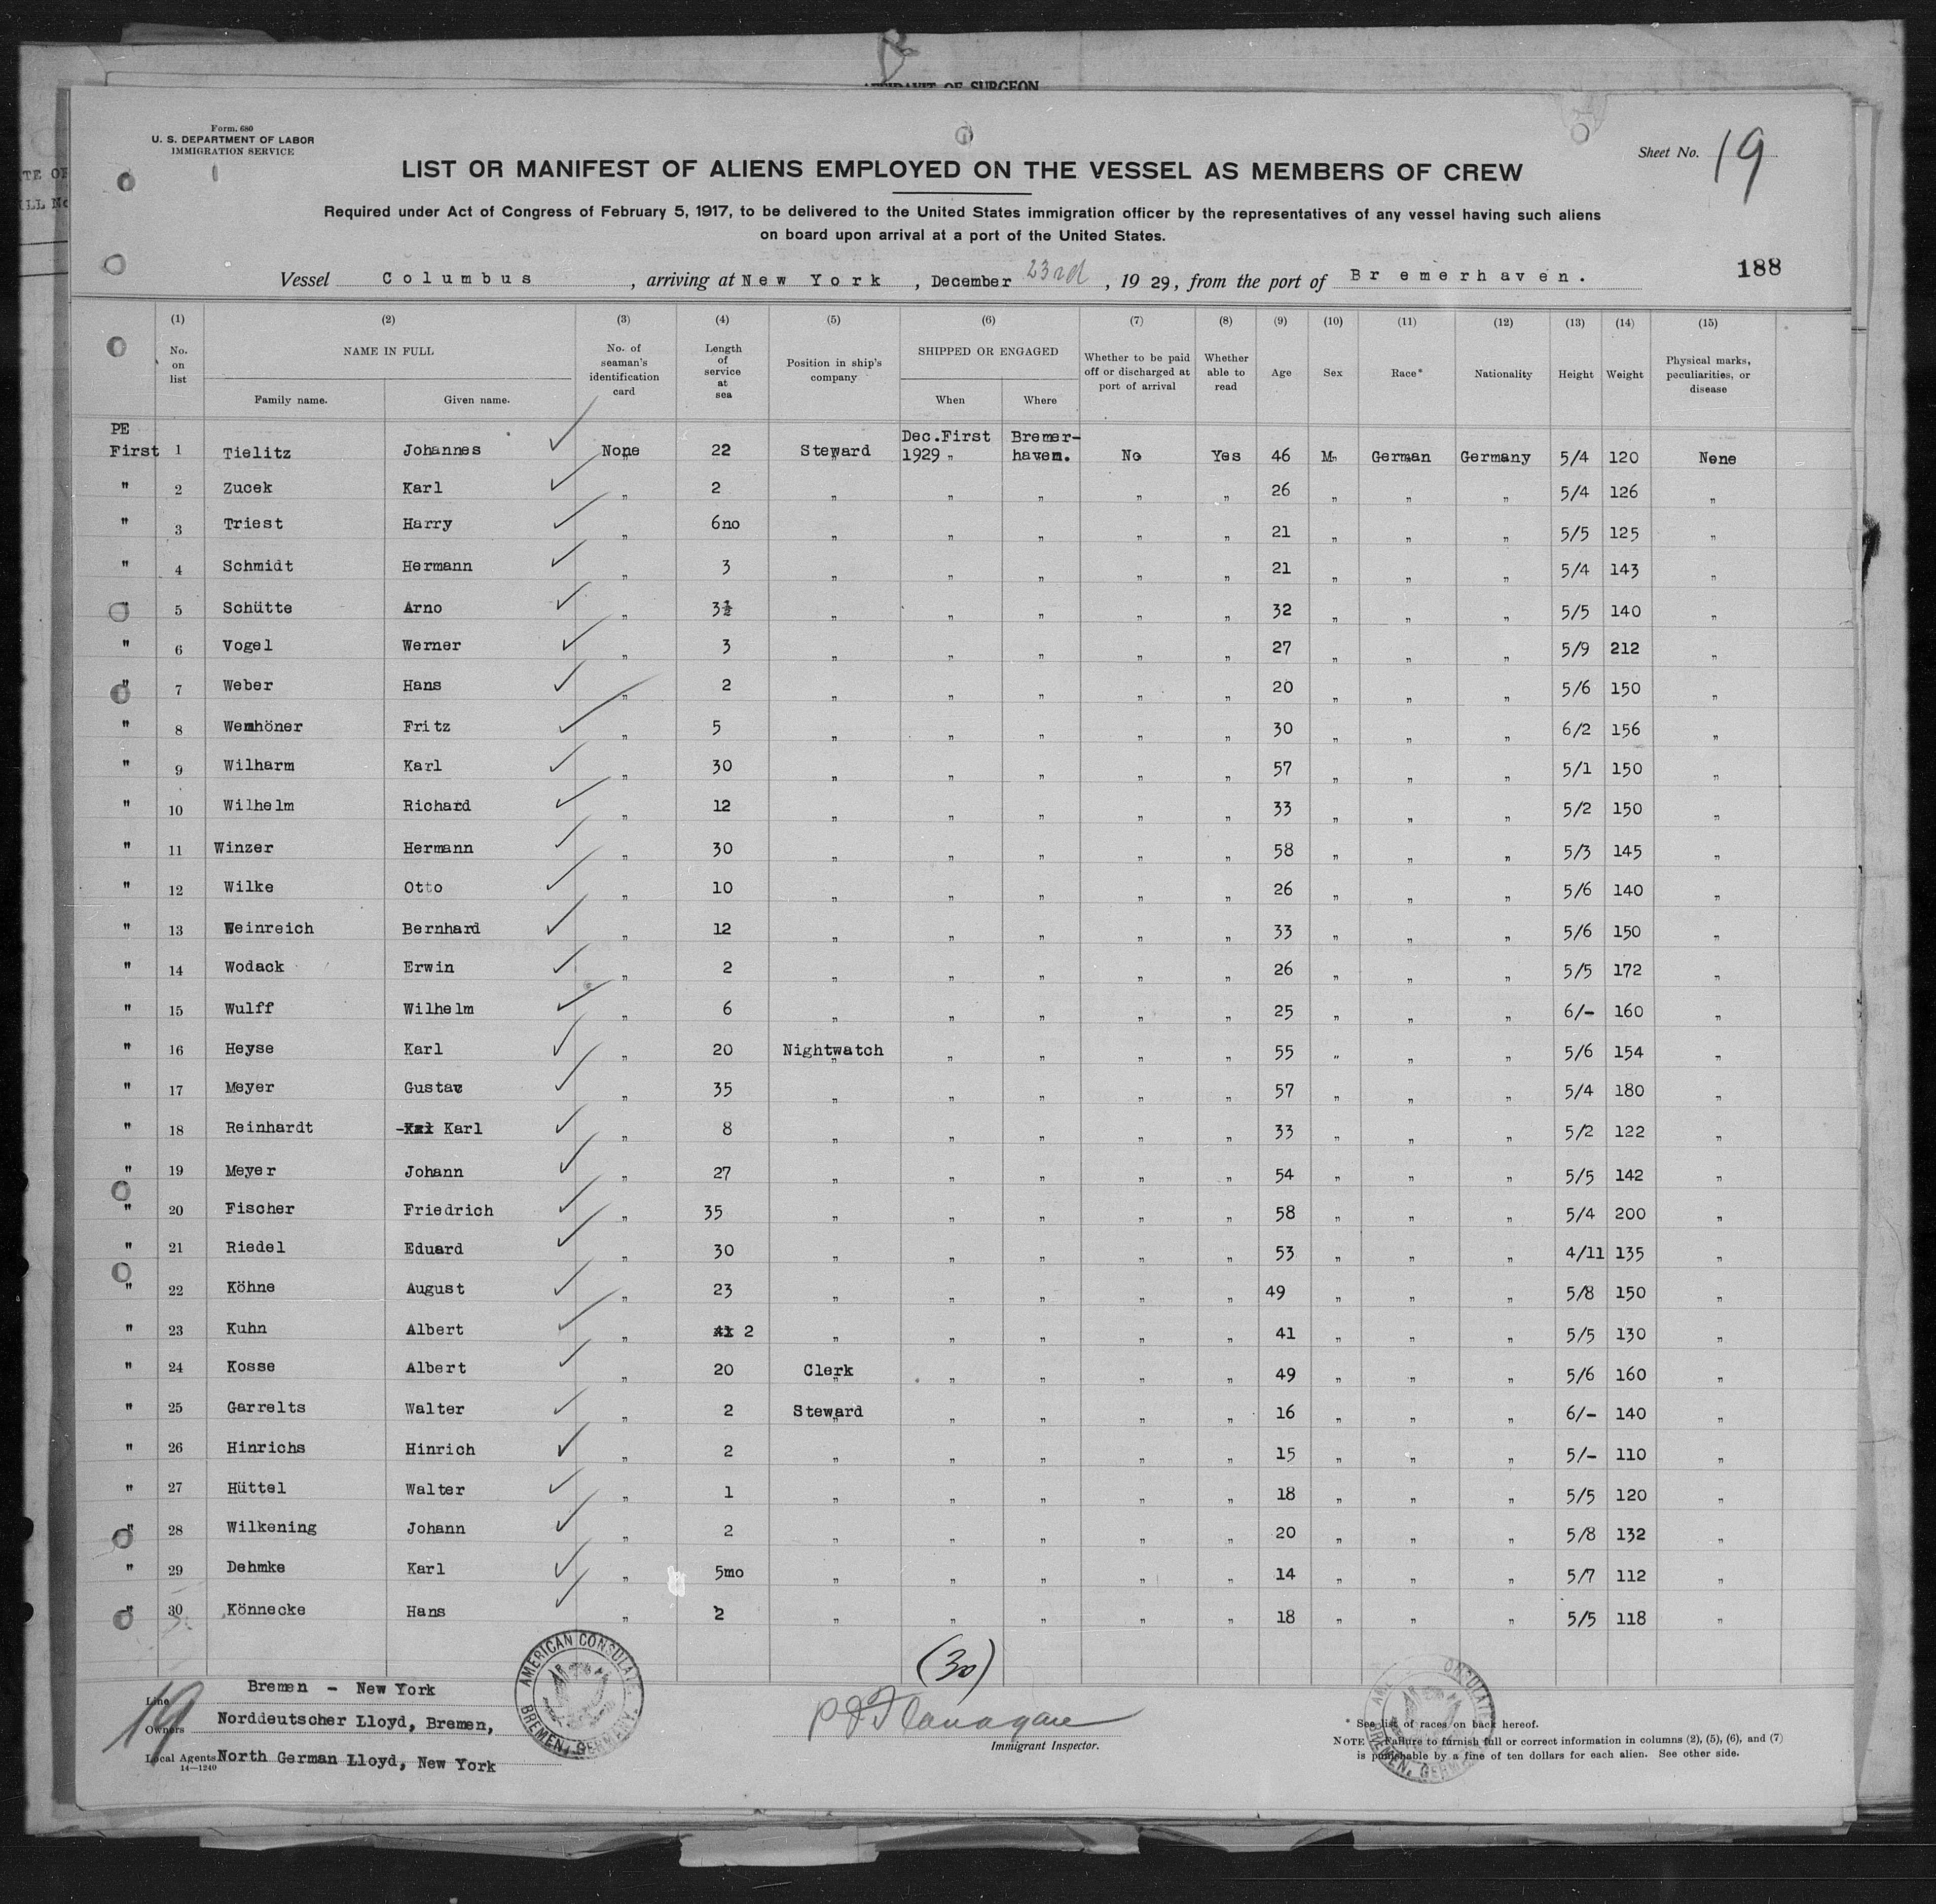 AFFIDAVIT OF SURGEON
Form. 680
U. S. DEPARTMENT OF LABOR
IMMIGRATION SERVICE
Sheet No. 19
LIST OR MANIFEST OF ALIENS EMPLOYED ON THE VESSEL AS MEMBERS OF CREW
Required under Act of Congress of February 5, 1917, to be delivered to the United States immigration officer by the representatives of any vessel having such aliens
on board upon arrival at a port of the United States.
Vessel Columbus, arriving at New York, December 23rd, 1929, from the port of Bremerhaven.
188
(1) (2) (3) (4) (5) (6) (7) (8) (9) (10) (11) (12) (13) (14) (15)
No. on list NAME IN FULL Family name. Given name. No. of seaman's identification card Length of service at sea Position in ship's company SHIPPED OR ENGAGED When Where Whether to be paid off or discharged at port of arrival Whether able to read Age Sex Race* Nationality Height Weight Physical marks, peculiarities, or disease
PE
First 1 Tielitz Johannes None 22 Steward Dec.First 1929 " Bremerhaven. No Yes 46 M" German Germany 5/4 120 None
" 2 Zucek Karl " 2 " " " " " 26 " " " 5/4 126 "
" 3 Triest Harry " 6no " " " " " 21 " " " 5/5 125 "
" 4 Schmidt Hermann " 3 " " " " " 21 " " " 5/4 143 "
" 5 Schütte Arno " 3½ " " " " " 32 " " " 5/5 140 "
" 6 Vogel Werner " 3 " " " " " 27 " " " 5/9 212 "
" 7 Weber Hans " 2 " " " " " 20 " " " 5/6 150 "
" 8 Wemhöner Fritz " 5 " " " " " 30 " " " 6/2 156 "
" 9 Wilharm Karl " 30 " " " " " 57 " " " 5/1 150 "
" 10 Wilhelm Richard " 12 " " " " " 33 " " " 5/2 150 "
" 11 Winzer Hermann " 30 " " " " " 58 " " " 5/3 145 "
" 12 Wilke Otto " 10 " " " " " 26 " " " 5/6 140 "
" 13 Weinreich Bernhard " 12 " " " " " 33 " " " 5/6 150 "
" 14 Wodack Erwin " 2 " " " " " 26 " " " 5/5 172 "
" 15 Wulff Wilhelm " 6 " " " " " 25 " " " 6/- 160 "
" 16 Heyse Karl " 20 Nightwatch " " " " 55 " " " 5/6 154 "
" 17 Meyer Gustav " 35 " " " " " 57 " " " 5/4 180 "
" 18 Reinhardt Karl " 8 " " " " " 33 " " " 5/2 122 "
" 19 Meyer Johann " 27 " " " " " 54 " " " 5/5 142 "
" 20 Fischer Friedrich " 35 " " " " " 58 " " " 5/4 200 "
" 21 Riedel Eduard " 30 " " " " " 53 " " " 4/11 135 "
" 22 Köhne August " 23 " " " " " 49 " " " 5/8 150 "
" 23 Kuhn Albert " 41 2 " " " " " 41 " " " 5/5 130 "
" 24 Kosse Albert " 20 Clerk " " " " 49 " " " 5/6 160 "
" 25 Garrelts Walter " 2 Steward " " " " 16 " " " 6/- 140 "
" 26 Hinrichs Hinrich " 2 " " " " " 15 " " " 5/- 110 "
" 27 Hüttel Walter " 1 " " " " " 18 " " " 5/5 120 "
" 28 Wilkening Johann " 2 " " " " " 20 " " " 5/8 132 "
" 29 Dehmke Karl " 5mo " " " " " 14 " " " 5/7 112 "
" 30 Könnecke Hans " 2 " " " " " 18 " " " 5/5 118 "
(30)
19
Line Bremen - New York
Owners Norddeutscher Lloyd, Bremen,
Local Agents North German Lloyd, New York
14—1240
AMERICAN CONSULATE BREMEN, GERMANY
P J Flanagan
Immigrant Inspector.
* See list of races on back hereof.
NOTE Failure to furnish full or correct information in columns (2), (5), (6), and (7)
is punishable by a fine of ten dollars for each alien. See other side.